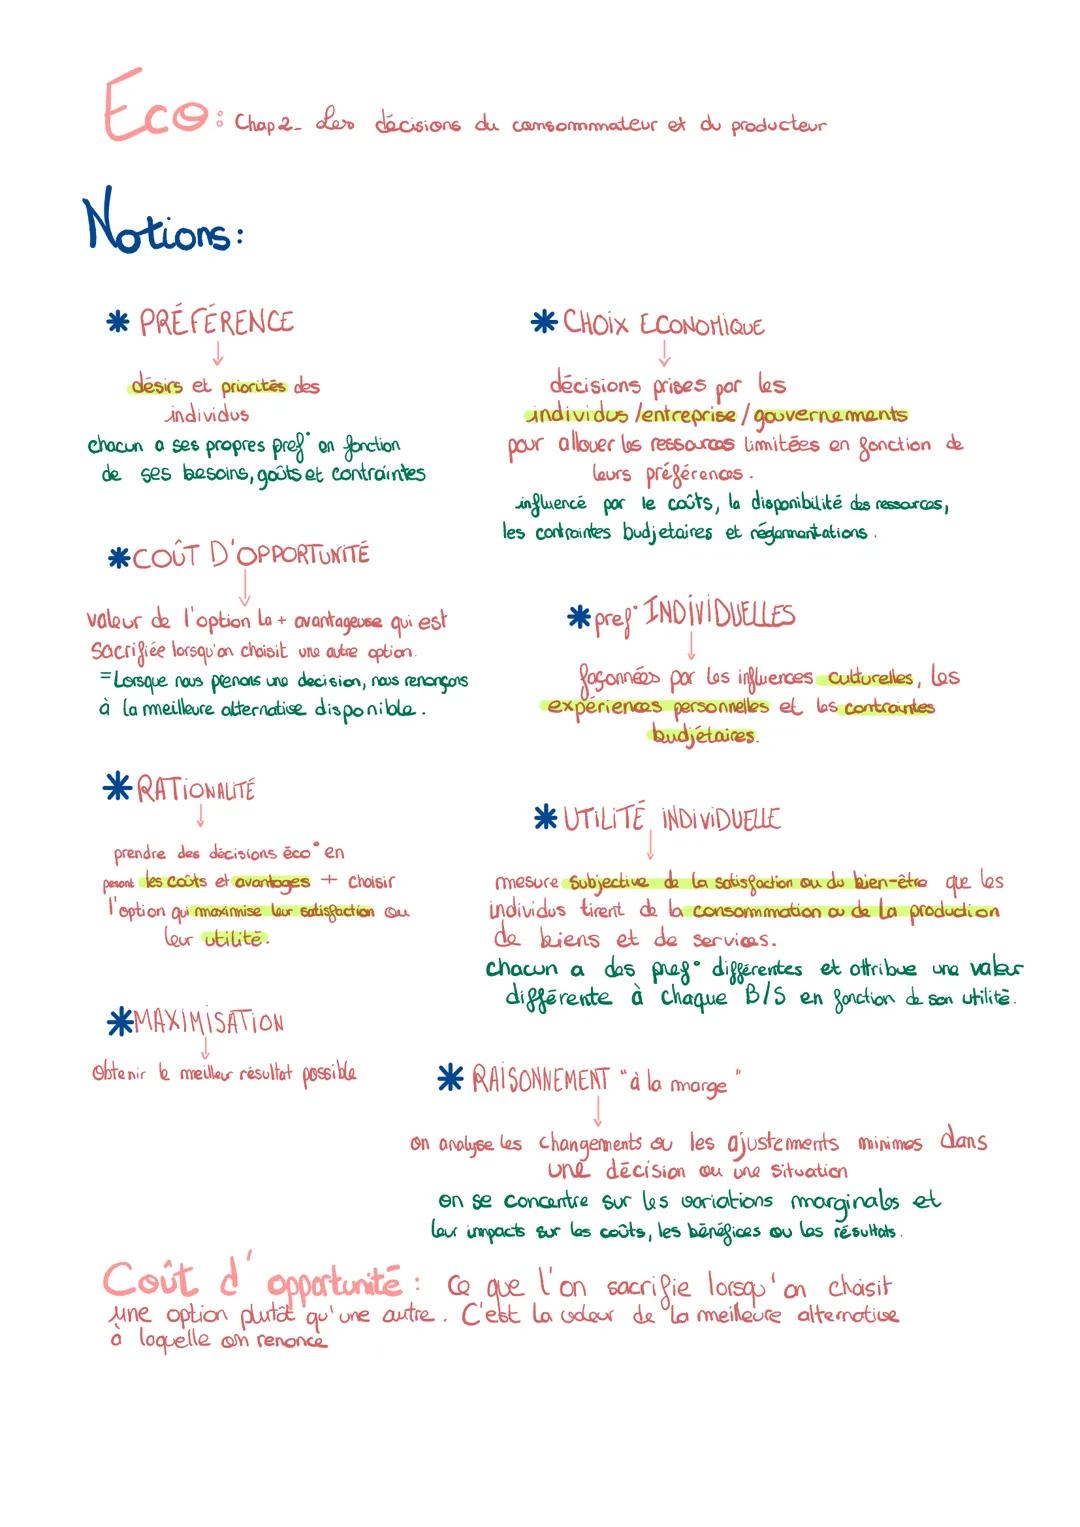 Eco: Chap 2- Les décisions du consommmateur et du producteur
Notions:
* PRÉFÉRENCE
↓
désirs et priorités des
individus
chacun a ses propres pref° en fonction
de ses besoins, goûts et contraintes
* COÛT D'OPPORTUNITÉ
↓
valeur de l'option la + avantageuse qui est
sacrifiée lorsqu'on choisit une autre option.
= Lorsque nous prenons une decision, nous renonçons
à la meilleure alternative disponible.
* RATIONALITÉ
↓
prendre des décisions éco° en
pesant les coûts et avantages + choisir
l'option qui maximise leur satisfaction ou
leur utilité.
* MAXIMISATION
↓
Obtenir le meilleur résultat possible
* CHOIX ECONOMIQUE
↓
décisions prises par les
individus /entreprise / gouvernements
pour allouer les ressources limitées en fonction de
leurs préférences.
influencé par le coûts, la disponibilité des ressources,
les contraintes budjetaires et réglementations.
* pref° INDIVIDUELLES
↓
façonnées par les influences culturelles, les
expériences personnelles et les contraintes
budjétaires.
* UTILITÉ INDIVIDUELLE
↓
mesure subjective de la satisfaction ou du bien-être que les
individus tirent de la consommation ou de la production
de biens et de services.
chacun a des pref° différentes et attribue une valeur
différente à chaque B/S en fonction de son utilité.
* RAISONNEMENT "à la marge"
↓
on analyse les changements ou les ajustements minimes dans
une décision ou une situation
on se concentre sur les variations marginales et
leur impacts sur les coûts, les bénéfices ou les résultats.
Coût d'opportunité: Ce que l'on sacrifie lorsqu'on choisit
une option plutôt qu'une autre. C'est la valeur de la meilleure alternative
à laquelle on renonce